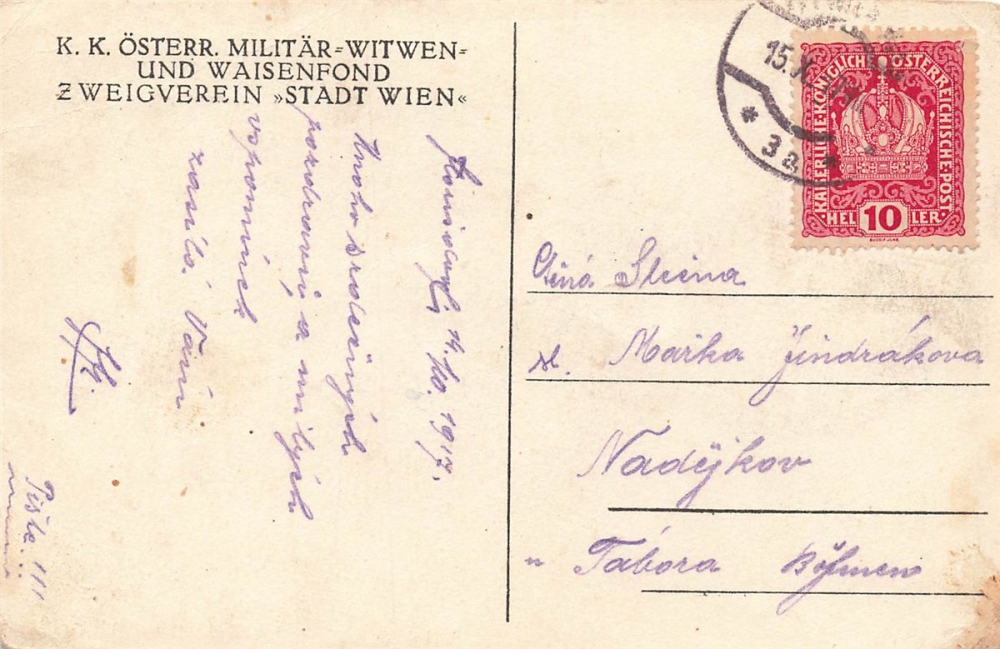 K. K. ÖSTERR. MILITÄR=WITWEN=
UND WAISENFOND
ZWEIGVEREIN »STADT WIEN«
14./10. 1917.
Mnoho srdečných
pozdravů a milých
vzpomínek
zasílá Vám
Pište!!!
15. X.
* 3a *
KAISERLICHE·KÖNIGLICHE ÖSTERREICHISCHE·POST
HEL 10 LER
Ctěná Slečna
sl. Mařka Jindrákova
Nadějkov
u Tábora Böhmen